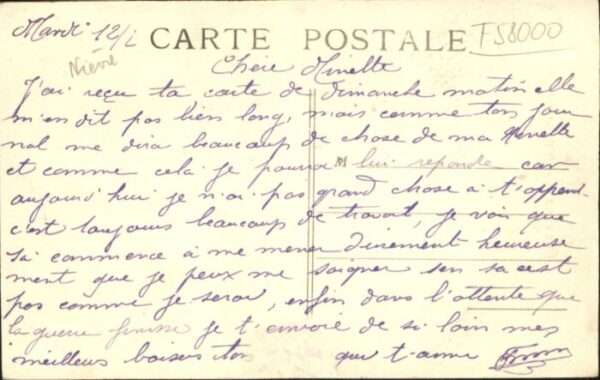 Mardi 12/2
CARTE POSTALE
F58000
Nièvre
Chère Minette
J'ai reçu ta carte de dimanche matin elle
m'en dit pas bien long, mais comme ton jour
nal me dira beaucoup de chose de ma Minette
et comme cela je pourrai lui reponde car
aujourd'hui je n'ai pas grand chose à t'apprend
c'est toujours beaucoup de travail, je vois que
sa commence à me mener durement heureuse
ment que je peux me soigner sen sa cest
pas comme je serai, enfin dans l'attente que
la guerre finisse je t'envoie de si loin mes
meilleurs baisers ton qui t'aime